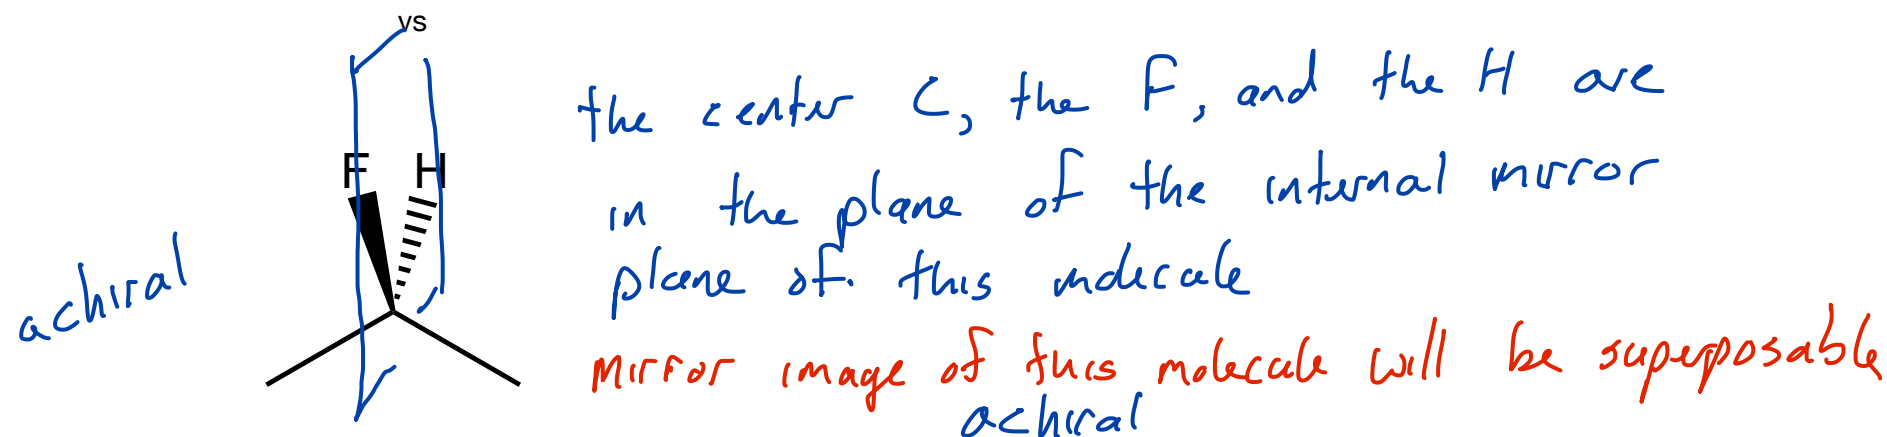 vs
F H
achiral
the center C, the F, and the H are
in the plane of the internal mirror
plane of this molecule
mirror image of this molecule will be superposable
achiral